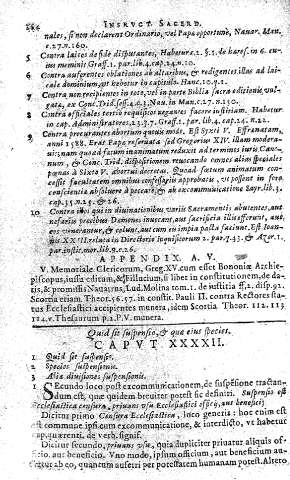 284 INSTRUCT. SACERD.
nales, si non declarent Ordinario, vel Papa opportunè, Navar. Man.
c.27.n.160.
5 Contra laicos de fide disputantes, Habetur c.2. §.1. de haret. in 6. cu-
ius meminit Graff.1. par.lib.4.cap.24.n.10.
6 Contra auferentes oblationes ab altaribus, & redigentes illas ad lai-
cale dominium, ut habetur in capitulis. Hanc n.190.1.
7 Contra non recipientes in toto, vel in parte Biblia sacra editionis vul-
gata, ex Conc.Trid. sess.4.c.1. Nau. in Man.c.27.n.150.
8 Contra officiales tertio requisitos negantes facere iustitiam. Habetur
in cap. Administratores.23.q.5. Graff.1. par.lib.4. cap.24.n.22.
9 Contra procurantes abortum quouis modo. Est Syxti V. Effrænatam,
anni 1588. Erat Papæ reseruata sed Gregorius XIV. illam modera-
uit; nam quoad fœtum inanimatum reduxit ad terminos iuris Canonum,
& Conc. Trid. dispositionem reuocando omnes alias speciales
pœnas à Sixto V. abortui decretas. Quoad fœtum animatum con-
cessit facultatem omnibus confessariis approbatis, vt possent in foro
conscientiæ absoluere à peccato, & ab excommunicatione Sayr.lib.3.
10 Contra illos qui in diuinationibus variis Sacramentis abutentes, aut
nefariis precibus Dæmones inuocent, aut sacrificia illis offerunt, aut
eos venerantur, & colunt, aut cum eis impia pacta faciunt. Est Ioan-
nis XXII. relata in Directorio Inquisitorum 2. par.q.43. & Azor.1.
par.instit.mor.lib.9.c.26.
APPENDIX A. V.
V. Memoriale Clericorum, Greg. XV. cum esset Bononiæ Archie-
piscopus, iussu editum, & Fillucium, si libet in constitutionem, de da-
tis, & promissis Nauarrus, Lud. Molina tom.1. de iustitia ff.2. disp.92.
Scortia etiam Theor.56.57. in constit. Pauli II. contra Rectores sta-
tus Ecclesiastici accipientes munera, idem Scortia Theor. 112. 113
114.v. Thesaurum p.2. P.V. munera.
Quid sit suspensio, & quæ eius species.
CAPUT XXXXII.
1 Quid sit suspensio.
2 Species suspensionis.
3 Alia diuisiones suspensionis.
1 SEcundo loco post excommunicationem, de suspēsione tractan-
dum est, quæ quidem breuiter potest sic definiri. Suspensio est
Ecclesiastica censura, priuans vsu Ecclesiastici officij, aut beneficij.
Dicitur primo Censura Ecclesiastica, loco generis: hoc enim est
ei commune ipsi cum excommunicatione, & interdicto, vt habetur
cap. quærenti. de verb. signif.
Dicitur secundo, priuans vsu, quia dupliciter priuatur aliquis of-
ficio, aut beneficio. Vno modo, ipsum officium, aut beneficium au-
fertur ab eo, quantum auferri per potestatem humanam potest. Altero